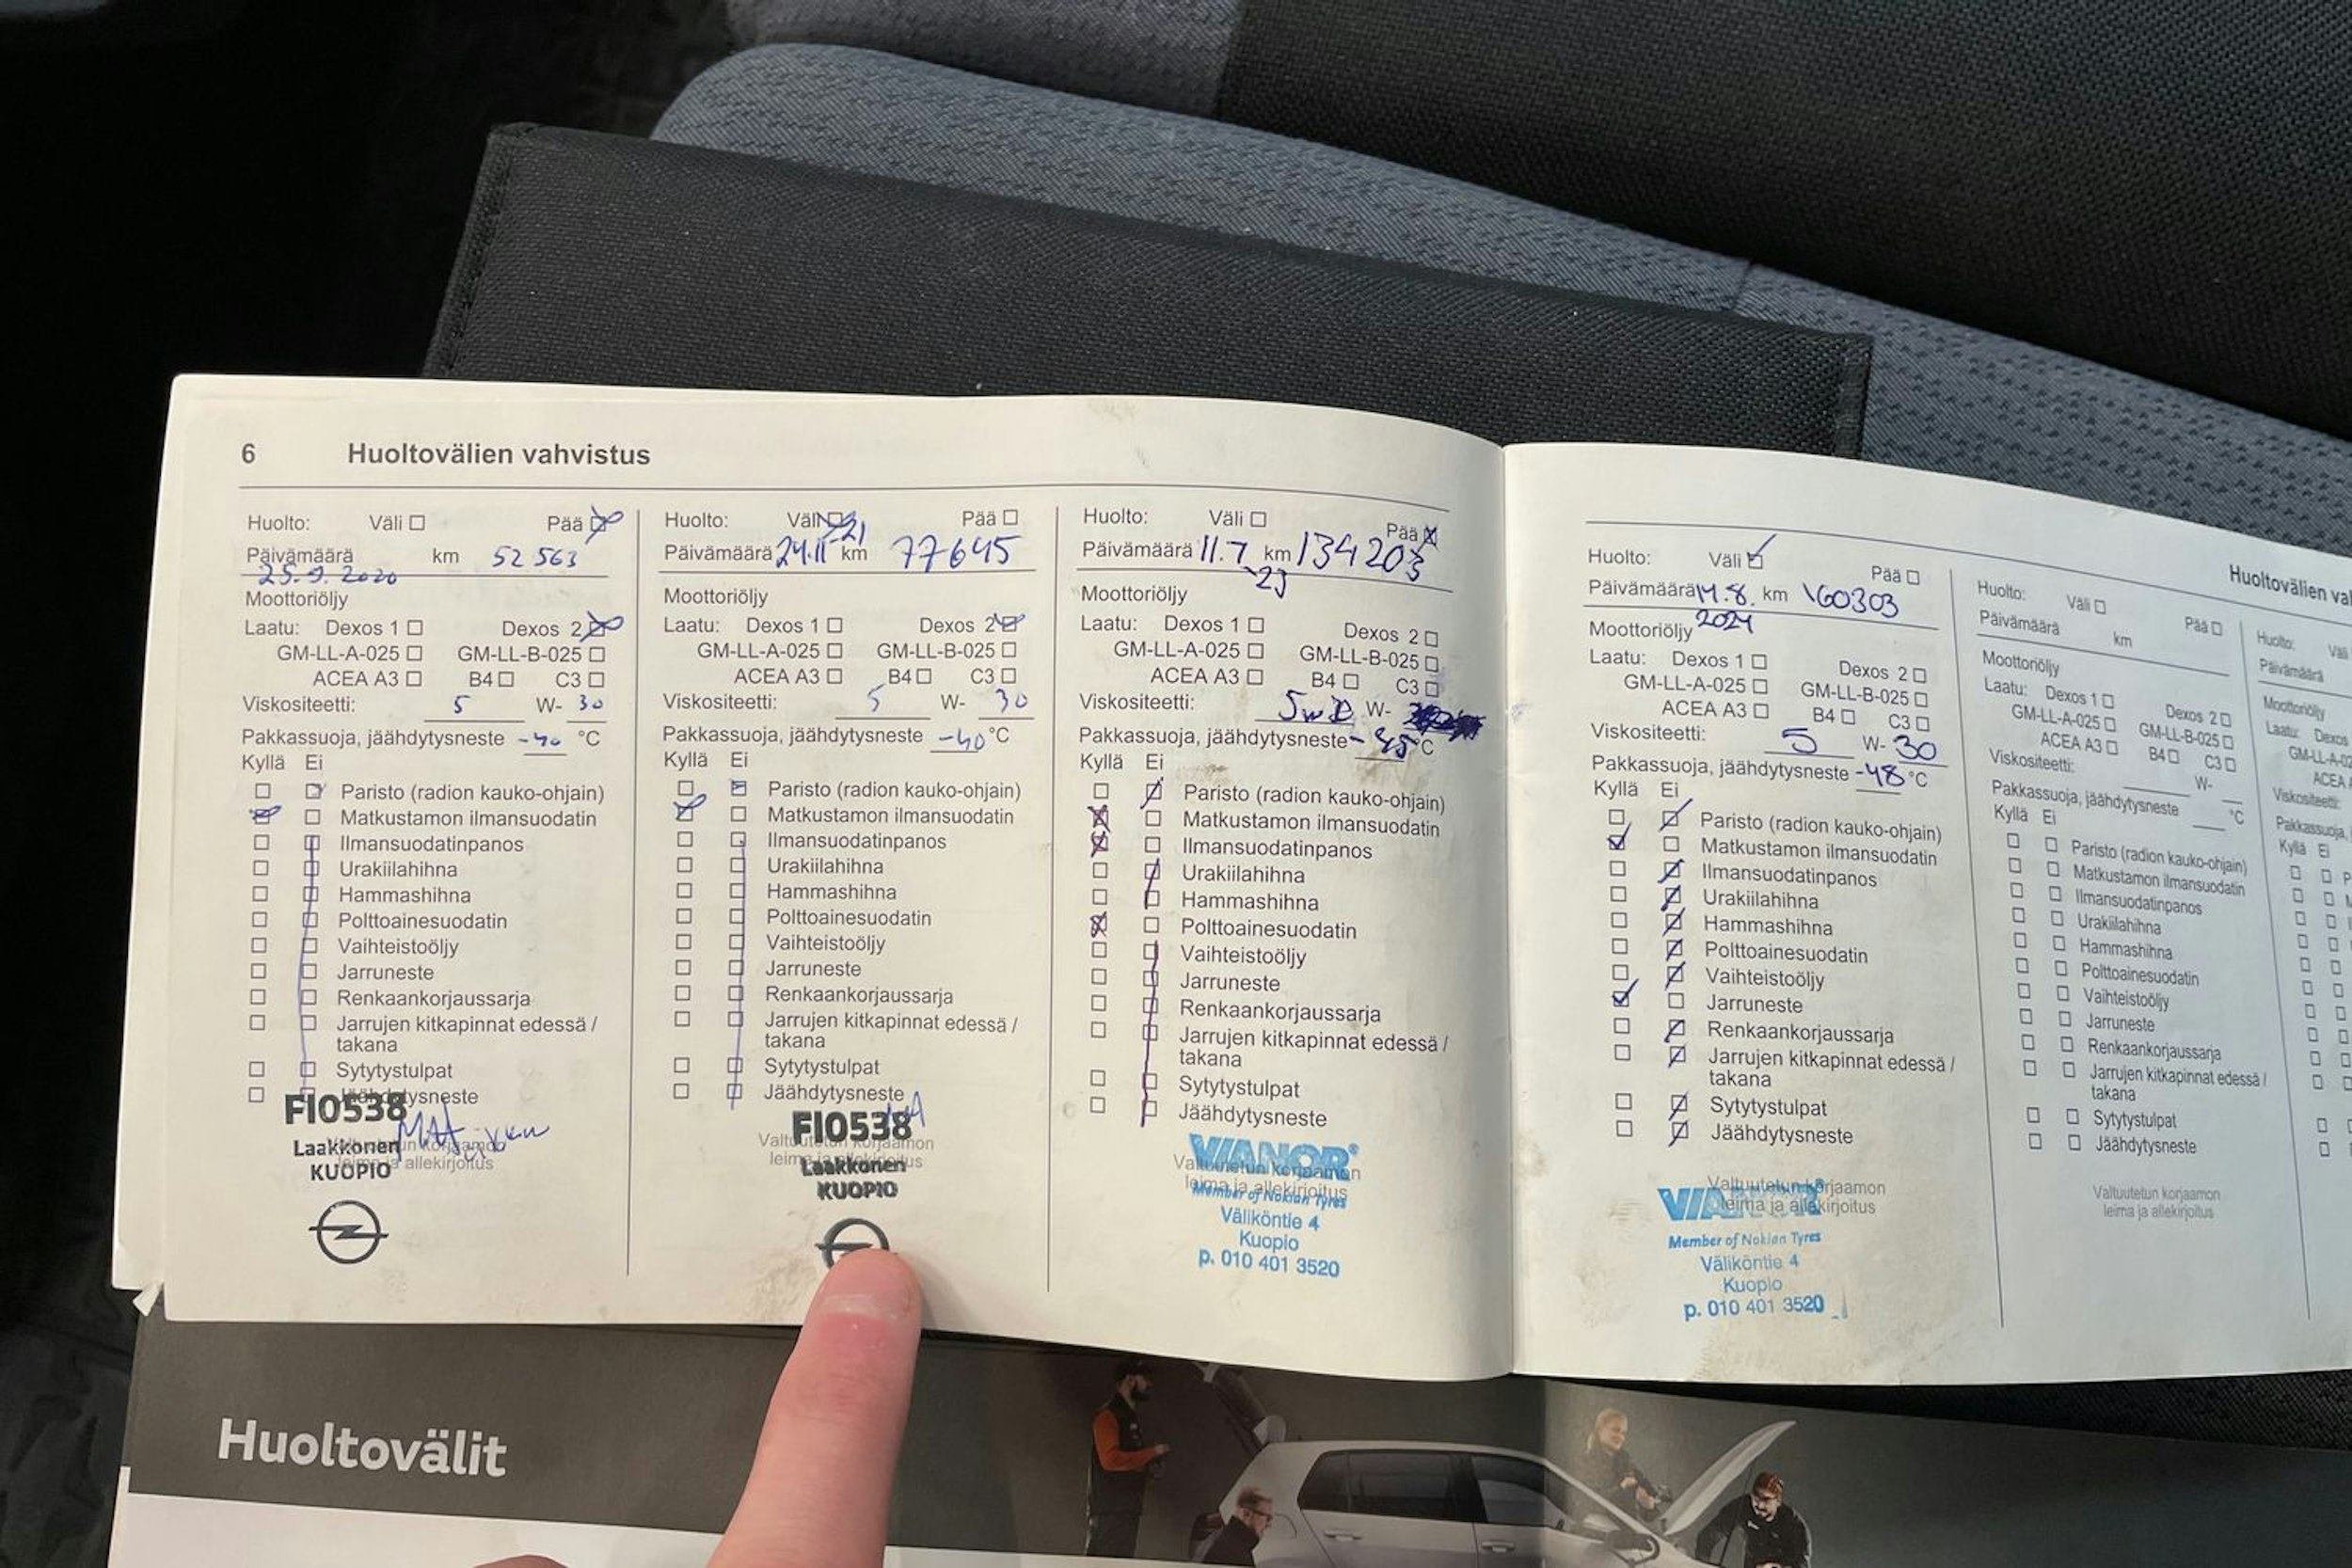 6 Huoltovälien vahvistus
Huolto: Väli Pää
Päivämäärä km 52 563
25.9.2020
Moottoriöljy
Laatu: Dexos 1 Dexos 2
GM-LL-A-025 GM-LL-B-025
ACEA A3 B4 C3
Viskositeetti: 5 W- 30
Pakkassuoja, jäähdytysneste -40 °C
Kyllä Ei
Paristo (radion kauko-ohjain)
Matkustamon ilmansuodatin
Ilmansuodatinpanos
Urakiilahihna
Hammashihna
Polttoainesuodatin
Vaihteistoöljy
Jarruneste
Renkaankorjaussarja
Jarrujen kitkapinnat edessä /
takana
Sytytystulpat
Jäähdytysneste
FI0538
Laakkonen
KUOPIO
Valtuutetun korjaamon
leima ja allekirjoitus
Huolto: Väli Pää
Päivämäärä 24.11 -21 km 77645
Moottoriöljy
Laatu: Dexos 1 Dexos 2
GM-LL-A-025 GM-LL-B-025
ACEA A3 B4 C3
Viskositeetti: 5 W- 30
Pakkassuoja, jäähdytysneste -40 °C
Kyllä Ei
Paristo (radion kauko-ohjain)
Matkustamon ilmansuodatin
Ilmansuodatinpanos
Urakiilahihna
Hammashihna
Polttoainesuodatin
Vaihteistoöljy
Jarruneste
Renkaankorjaussarja
Jarrujen kitkapinnat edessä /
takana
Sytytystulpat
Jäähdytysneste
FI0538
Valtuutetun korjaamon
leima ja allekirjoitus
Laakkonen
KUOPIO
Huolto: Väli Pää
Päivämäärä 11.7 km 134203
-23
Moottoriöljy
Laatu: Dexos 1 Dexos 2
GM-LL-A-025 GM-LL-B-025
ACEA A3 B4 C3
Viskositeetti: W-
Pakkassuoja, jäähdytysneste -45 °C
Kyllä Ei
Paristo (radion kauko-ohjain)
Matkustamon ilmansuodatin
Ilmansuodatinpanos
Urakiilahihna
Hammashihna
Polttoainesuodatin
Vaihteistoöljy
Jarruneste
Renkaankorjaussarja
Jarrujen kitkapinnat edessä /
takana
Sytytystulpat
Jäähdytysneste
VIANOR
Valtuutetun korjaamon
leima ja allekirjoitus
Member of Nokian Tyres
Väliköntie 4
Kuopio
p. 010 401 3520
Huolto: Väli Pää
Päivämäärä 14.8. km 160303
2024
Moottoriöljy
Laatu: Dexos 1 Dexos 2
GM-LL-A-025 GM-LL-B-025
ACEA A3 B4 C3
Viskositeetti: 5 W- 30
Pakkassuoja, jäähdytysneste -48 °C
Kyllä Ei
Paristo (radion kauko-ohjain)
Matkustamon ilmansuodatin
Ilmansuodatinpanos
Urakiilahihna
Hammashihna
Polttoainesuodatin
Vaihteistoöljy
Jarruneste
Renkaankorjaussarja
Jarrujen kitkapinnat edessä /
takana
Sytytystulpat
Jäähdytysneste
Valtuutetun korjaamon
VIANOR leima ja allekirjoitus
Member of Nokian Tyres
Väliköntie 4
Kuopio
p. 010 401 3520
Huolto: Väli Pää
Päivämäärä km
Moottoriöljy
Laatu: Dexos 1 Dexos 2
GM-LL-A-025 GM-LL-B-025
ACEA A3 B4 C3
Viskositeetti: W-
Pakkassuoja, jäähdytysneste °C
Kyllä Ei
Paristo (radion kauko-ohjain)
Matkustamon ilmansuodatin
Ilmansuodatinpanos
Urakiilahihna
Hammashihna
Polttoainesuodatin
Vaihteistoöljy
Jarruneste
Renkaankorjaussarja
Jarrujen kitkapinnat edessä /
takana
Sytytystulpat
Jäähdytysneste
Valtuutetun korjaamon
leima ja allekirjoitus
Huoltovälien va
Huolto: Väli
Päivämäärä
Moottoriöljy
Laatu: Dexos
GM-LL-A-02
ACEA A
Viskositeetti:
Pakkassuoja,
Kyllä Ei
Huoltovälit